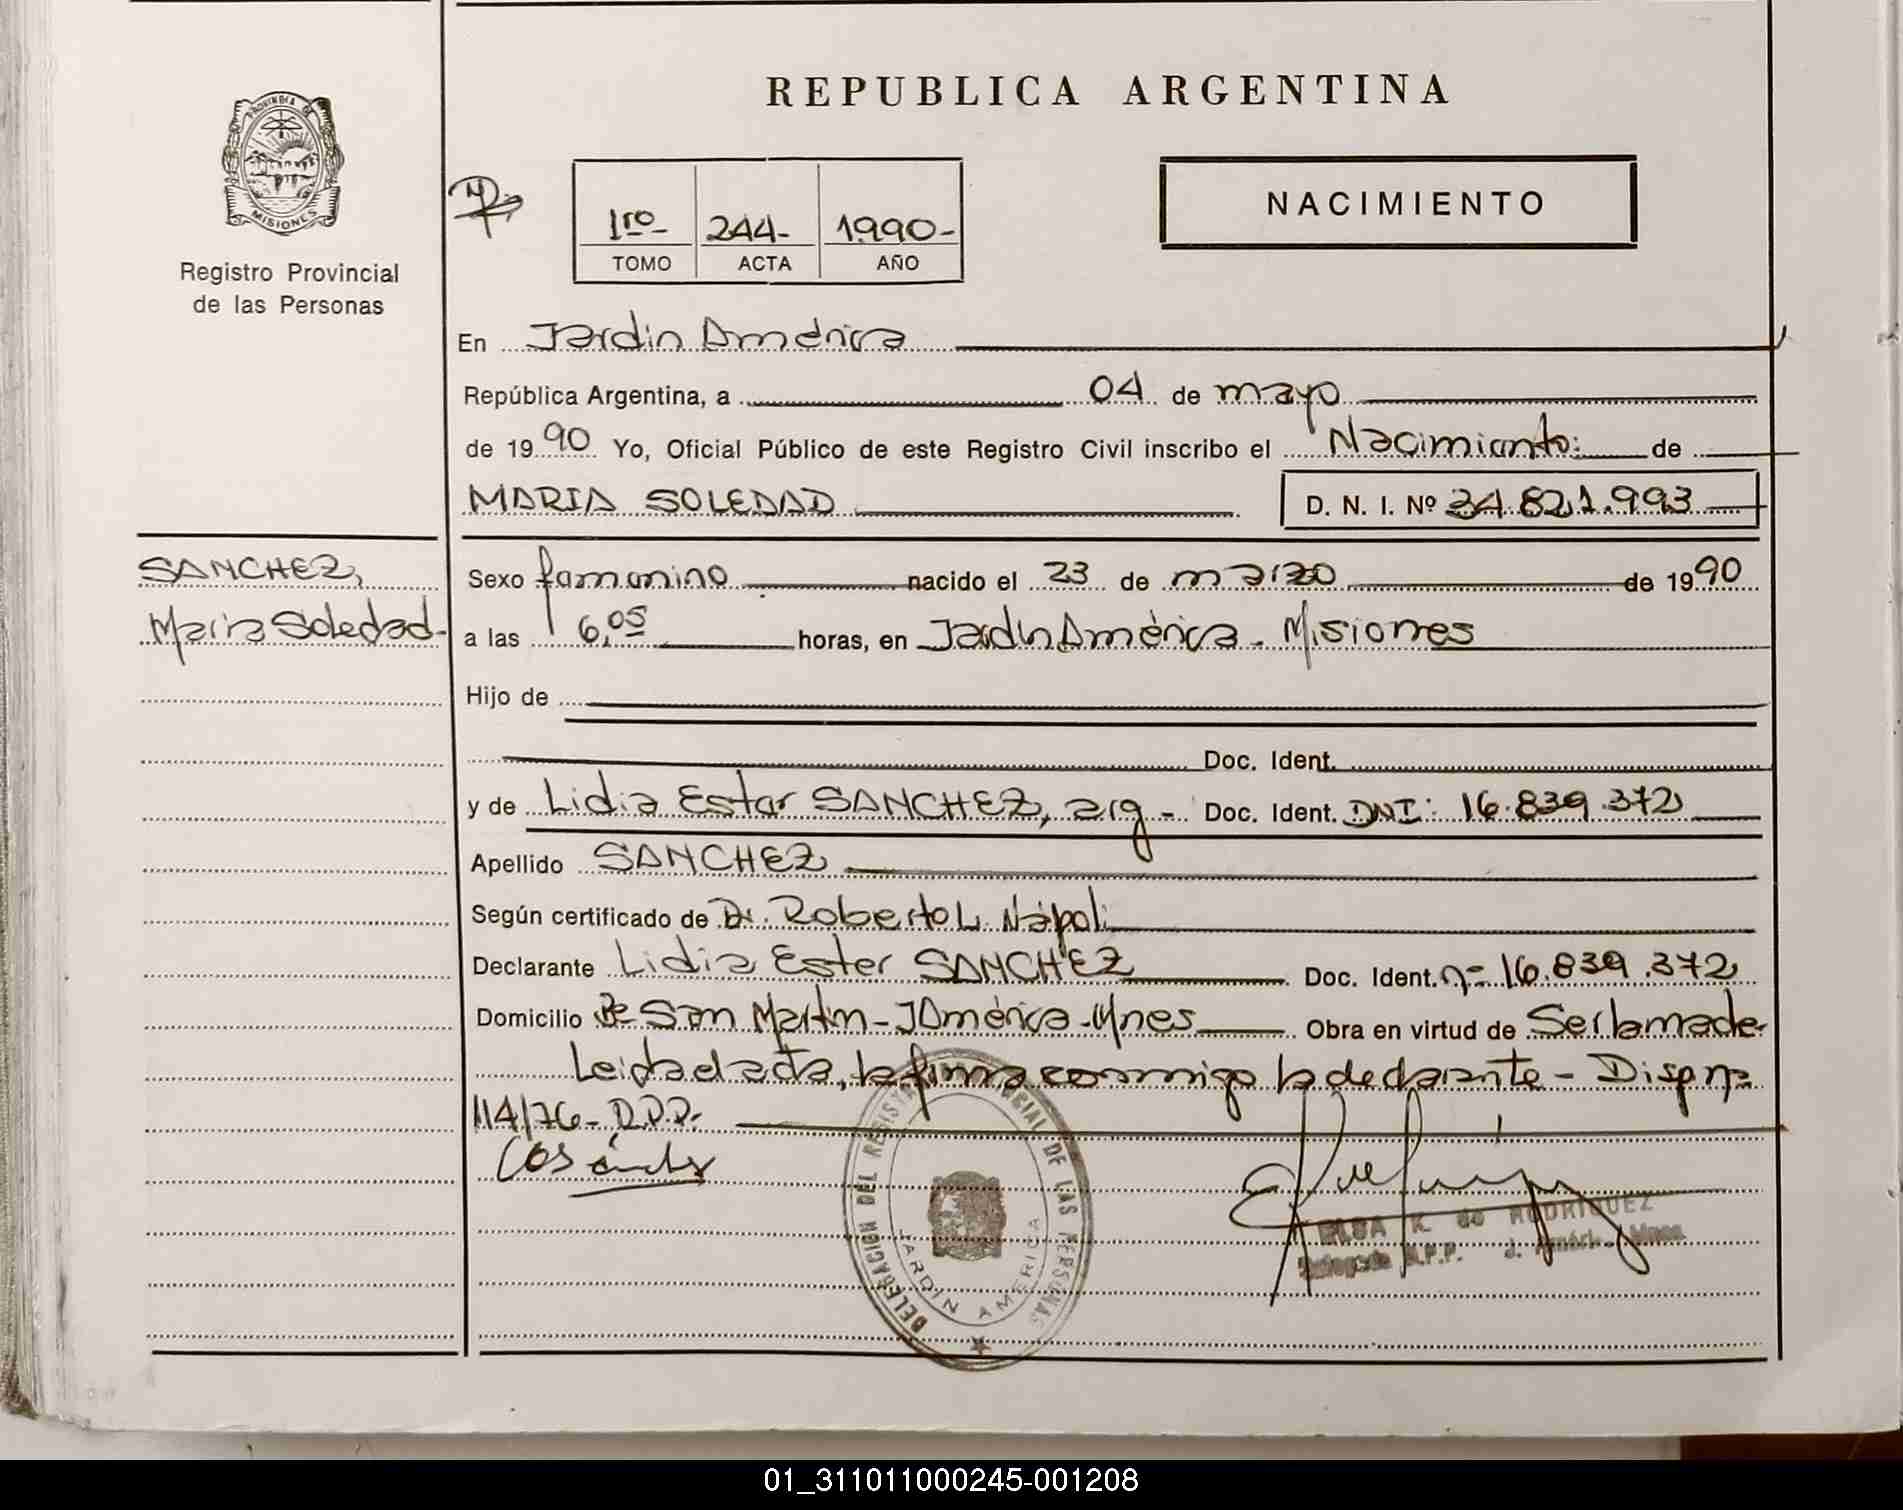 REPUBLICA ARGENTINA
PROVINCIA DE
MISIONES
Registro Provincial
de las Personas
1ro
244-
1990-
TOMO
ACTA
AÑO
NACIMIENTO
En Jardín América
República Argentina, a 04 de mayo
de 1990 Yo, Oficial Público de este Registro Civil inscribo el Nacimiento: de
MARIA SOLEDAD
D. N. I. Nº 34.821.993
SANCHEZ,
Maria Soledad-
Sexo femenino nacido el 23 de marzo de 1990
a las 6,05 horas, en Jardín América - Misiones
Hijo de
Doc. Ident.
y de Lidia Ester SANCHEZ, arg - Doc. Ident. DNI: 16.839.372
Apellido SANCHEZ
Según certificado de Dr. Roberto L. Nápoli
Declarante Lidia Ester SANCHEZ Doc. Ident. nº 16.839.372
Domicilio Bº San Martín - J América - Mnes Obra en virtud de Ser la madre-
Leída el acta, la firma conmigo la declarante - Disp nº
114/76 - D.P.P.
DELEGACION DEL REGISTRO PROVINCIAL DE LAS PERSONAS
JARDIN AMERICA
ELSA K. de RODRIGUEZ
Delegada R.P.P. J. Améric. Mnes.
01_311011000245-001208